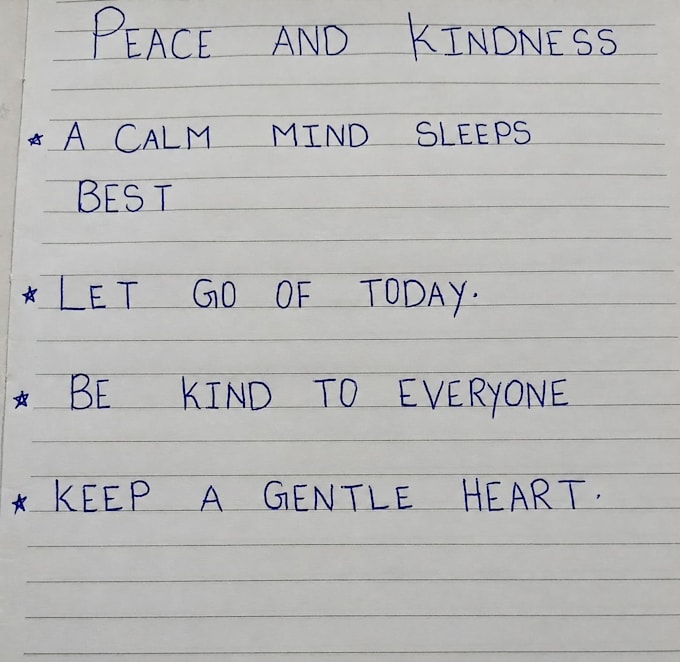 PEACE AND KINDNESS
☆ A CALM MIND SLEEPS
BEST
☆ LET GO OF TODAY.
☆ BE KIND TO EVERYONE
☆ KEEP A GENTLE HEART.